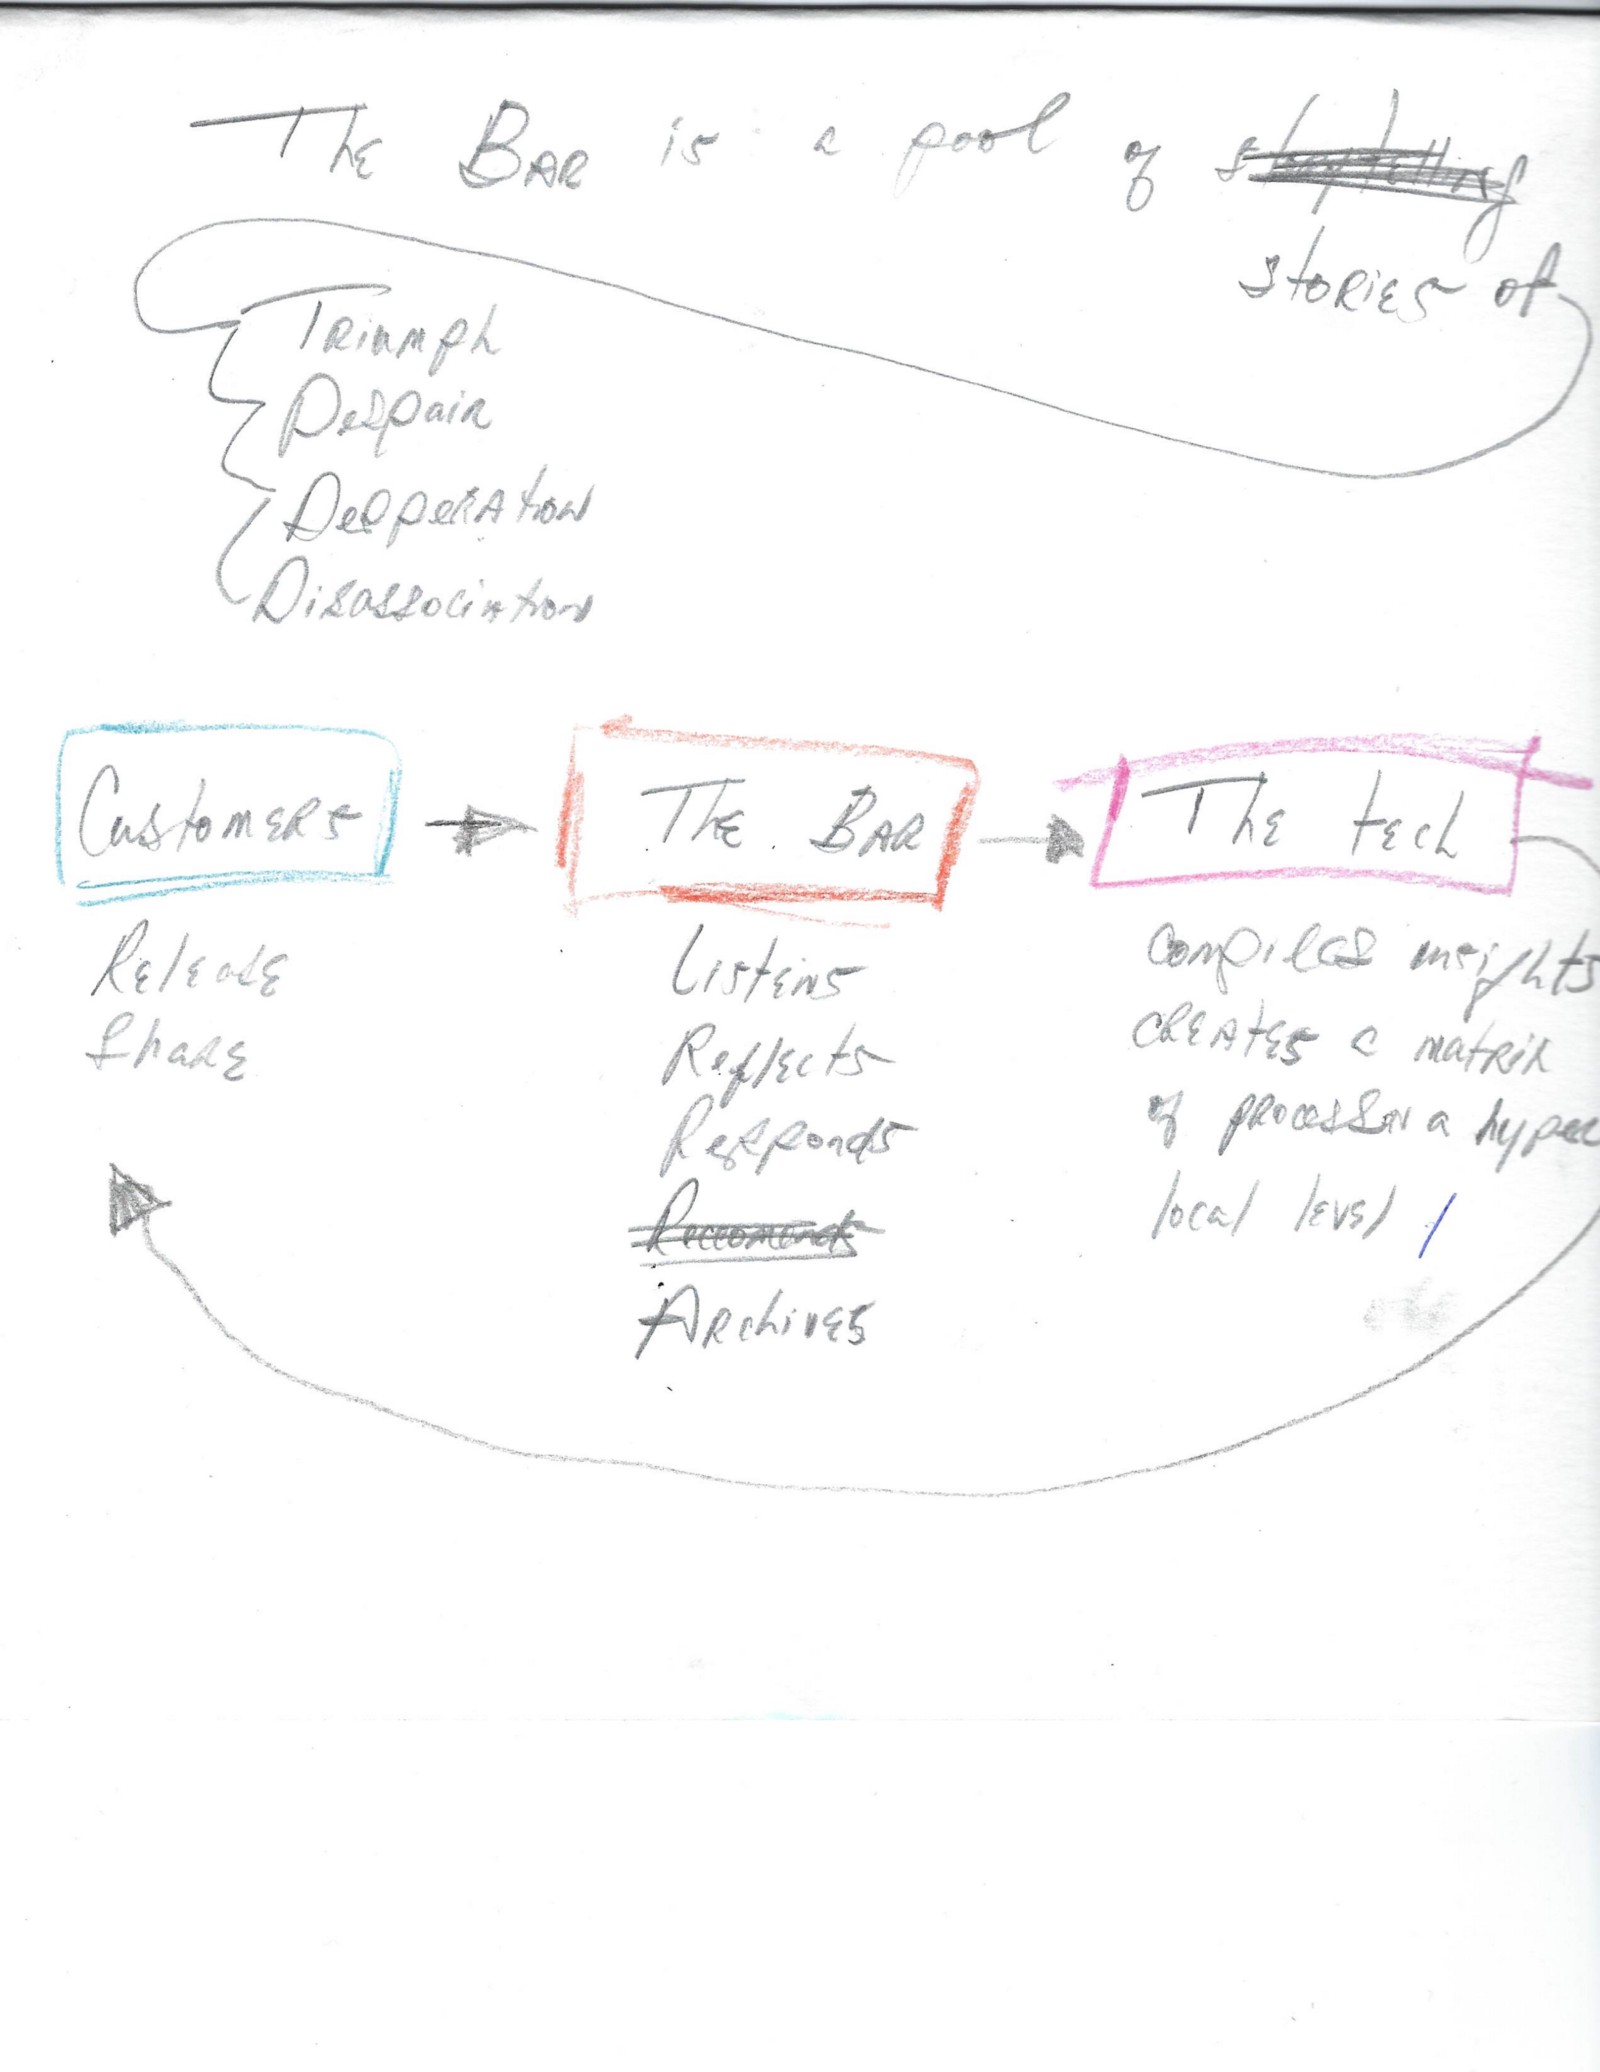 The Bar is a pool of storytelling
stories of
Triumph
Despair
Desperation
Disassociation
Customers
Release
Share
The Bar
Listens
Reflects
Responds
Reccomends
Archives
The tech
Compiles insights
creates a matrix
of process on a hyper
local level